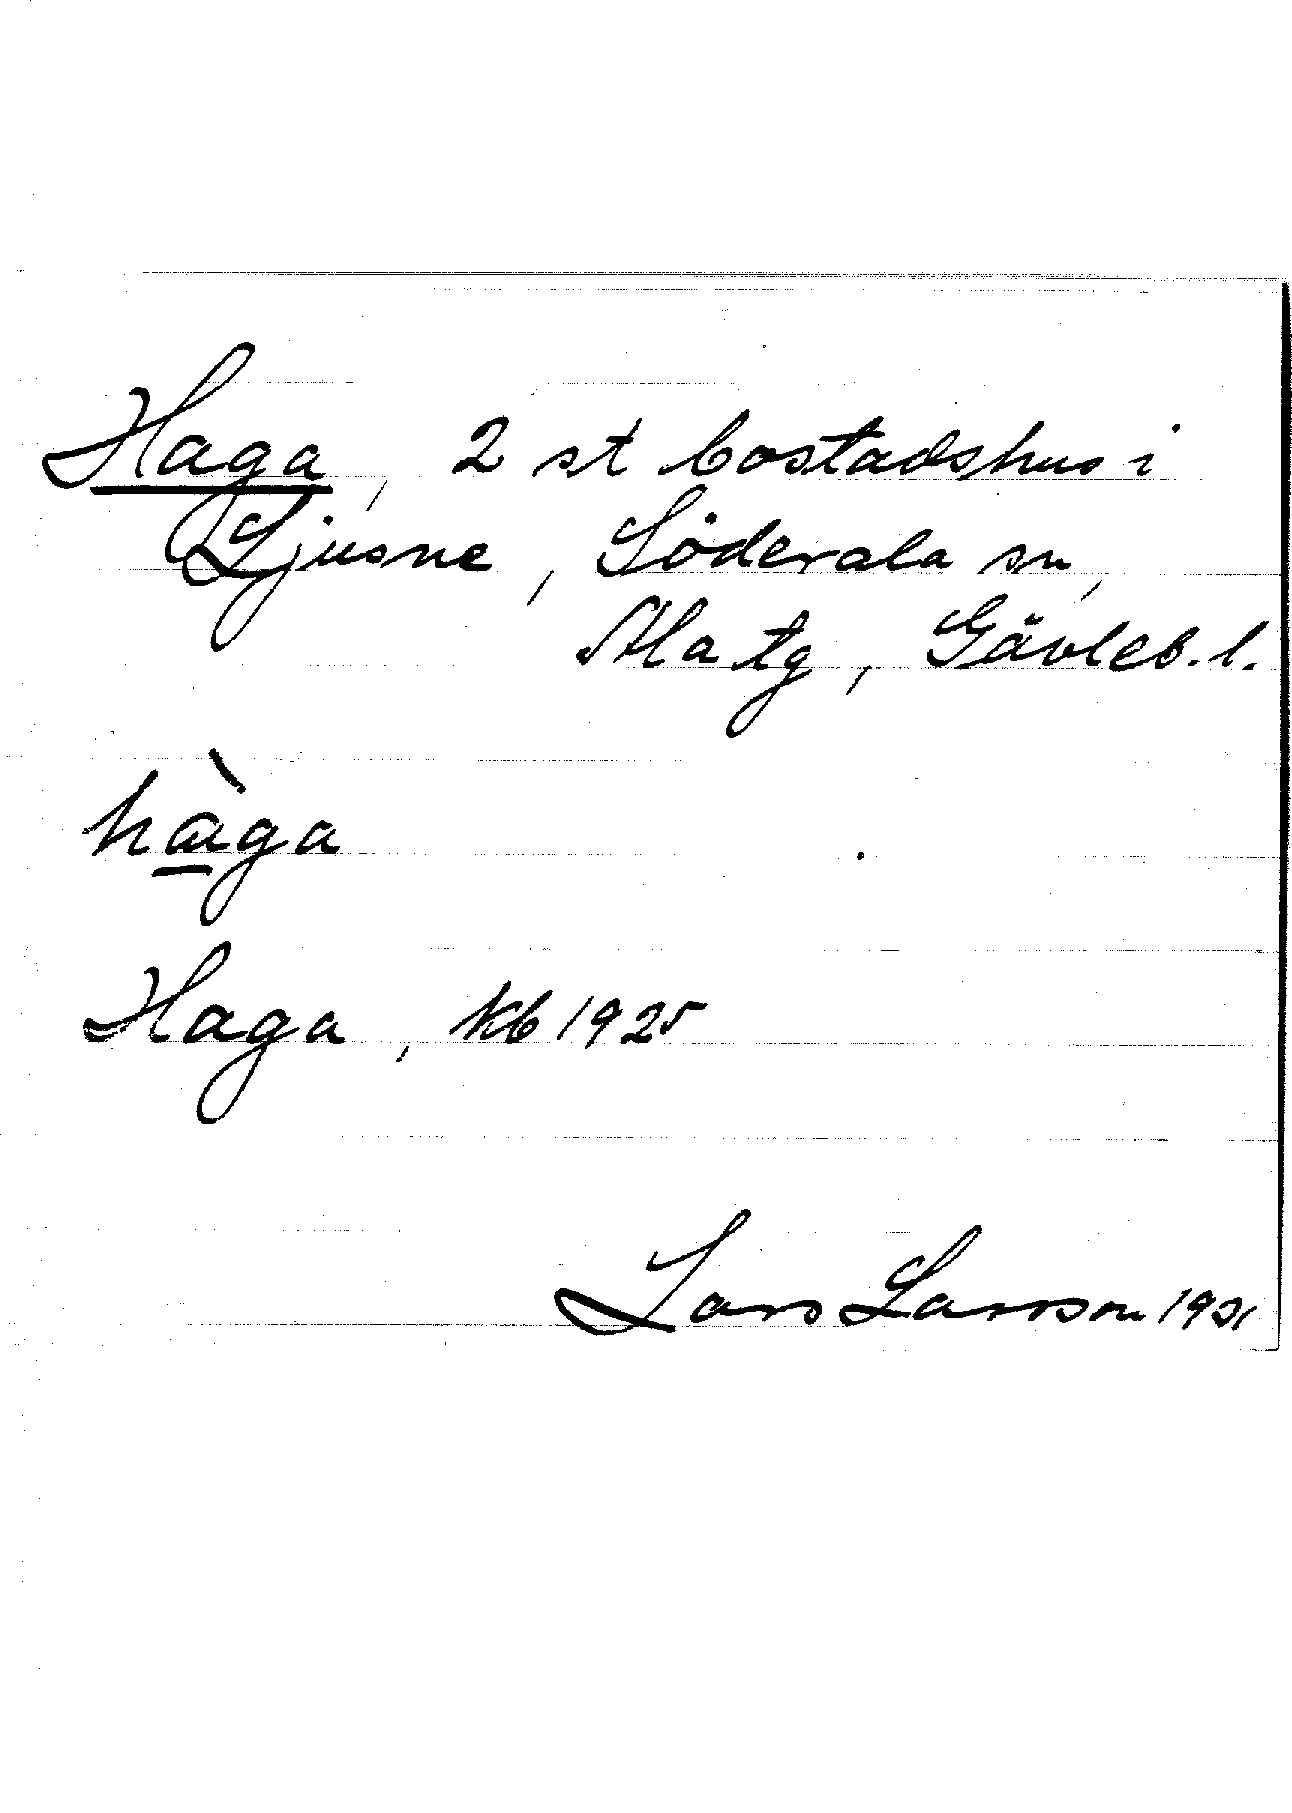 Haga, 2 st bostadshus i
Ljusne, Söderala sn,
Ala tg, Gävleb. l.
hà̱ga
Haga, kb 1925
Lars Larsson 1931